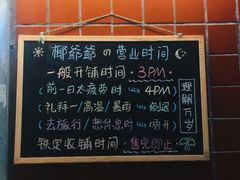 椰爷爷の营业时间
一般开铺时间·3PM·
(前一日太疲劳时 → 4PM)
(礼拜一/高温/暴雨 → 倒退)
(去旅行/想休息时 → 唔开)
铁定收铺时间:售完即止
理解万岁